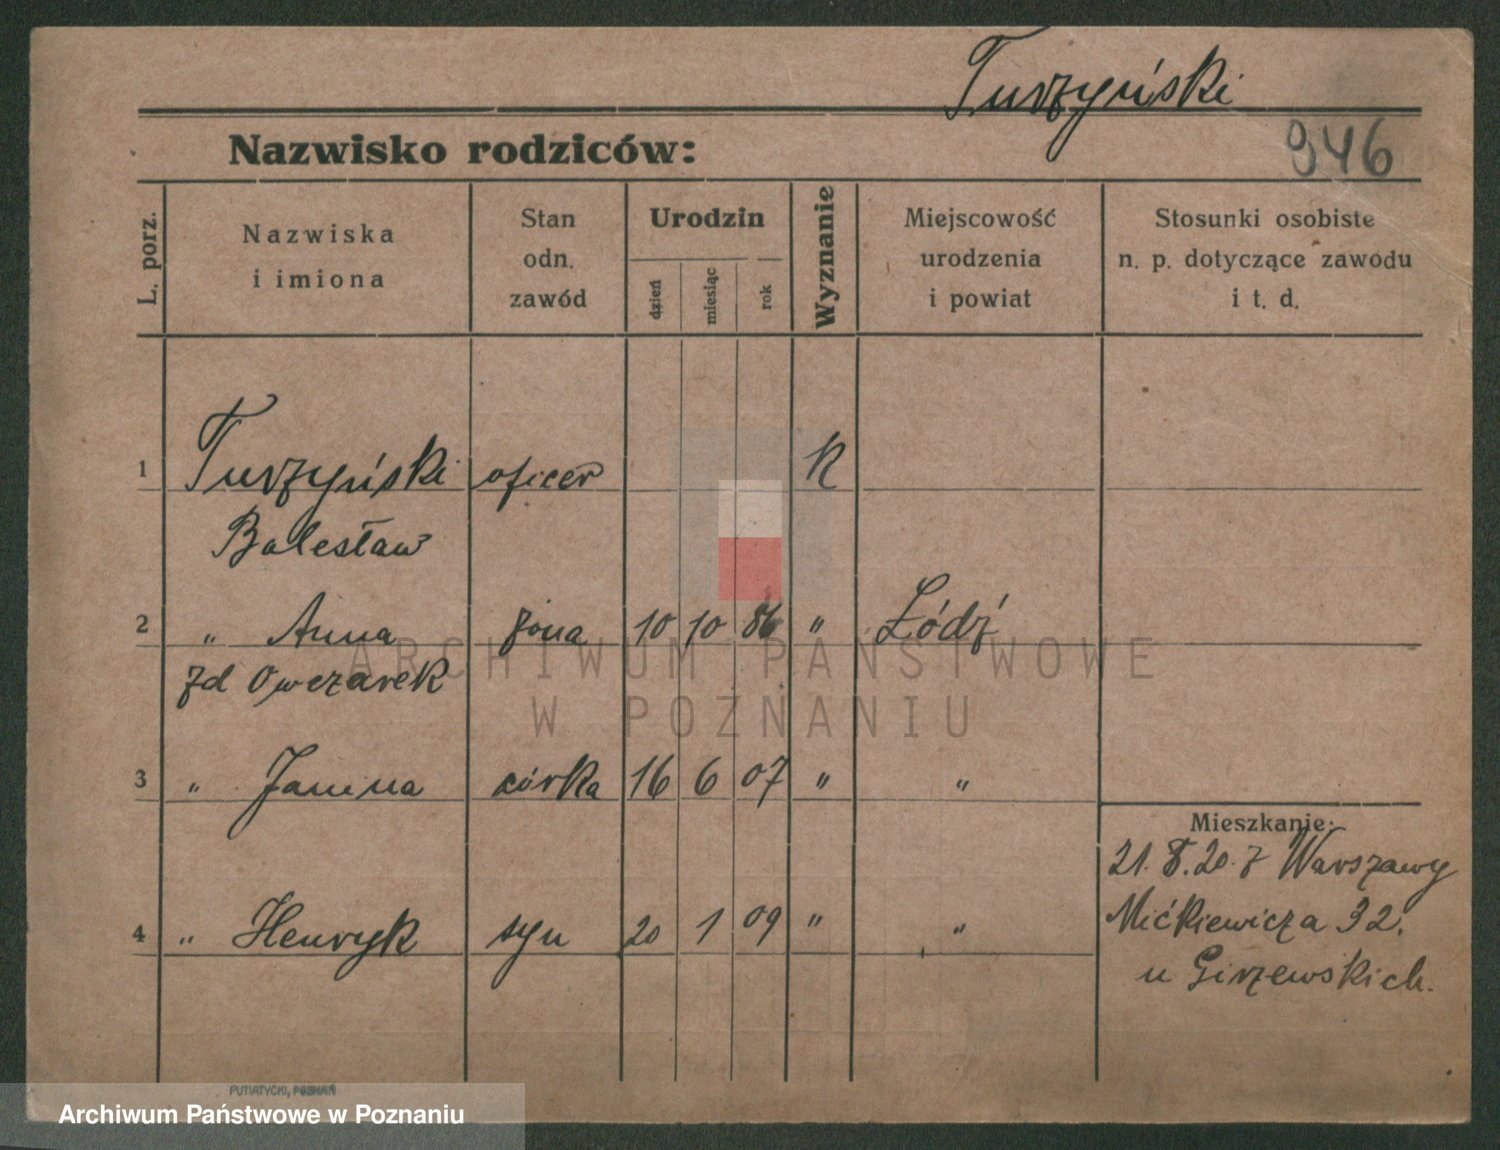 Turzyński
Nazwisko rodziców:
946
L. porz.
Nazwiska
i imiona
Stan
odn.
zawód
Urodzin
dzień
miesiąc
rok
Wyznanie
Miejscowość
urodzenia
i powiat
Stosunki osobiste
n. p. dotyczące zawodu
i t. d.
1 Turzyński oficer K
Bolesław
2 " Anna żona 10 10 86 " Łódź
zd Owczarek
3 " Janina córka 16 6 07 " "
4 " Henryk syn 20 1 09 " "
Mieszkanie:
21.8.20. z Warszawy
Mićkiewicza 32.
u Girzewskich.
ARCHIWUM PAŃSTWOWE
W POZNANIU
PUTIATYCKI, POZNAŃ
Archiwum Państwowe w Poznaniu